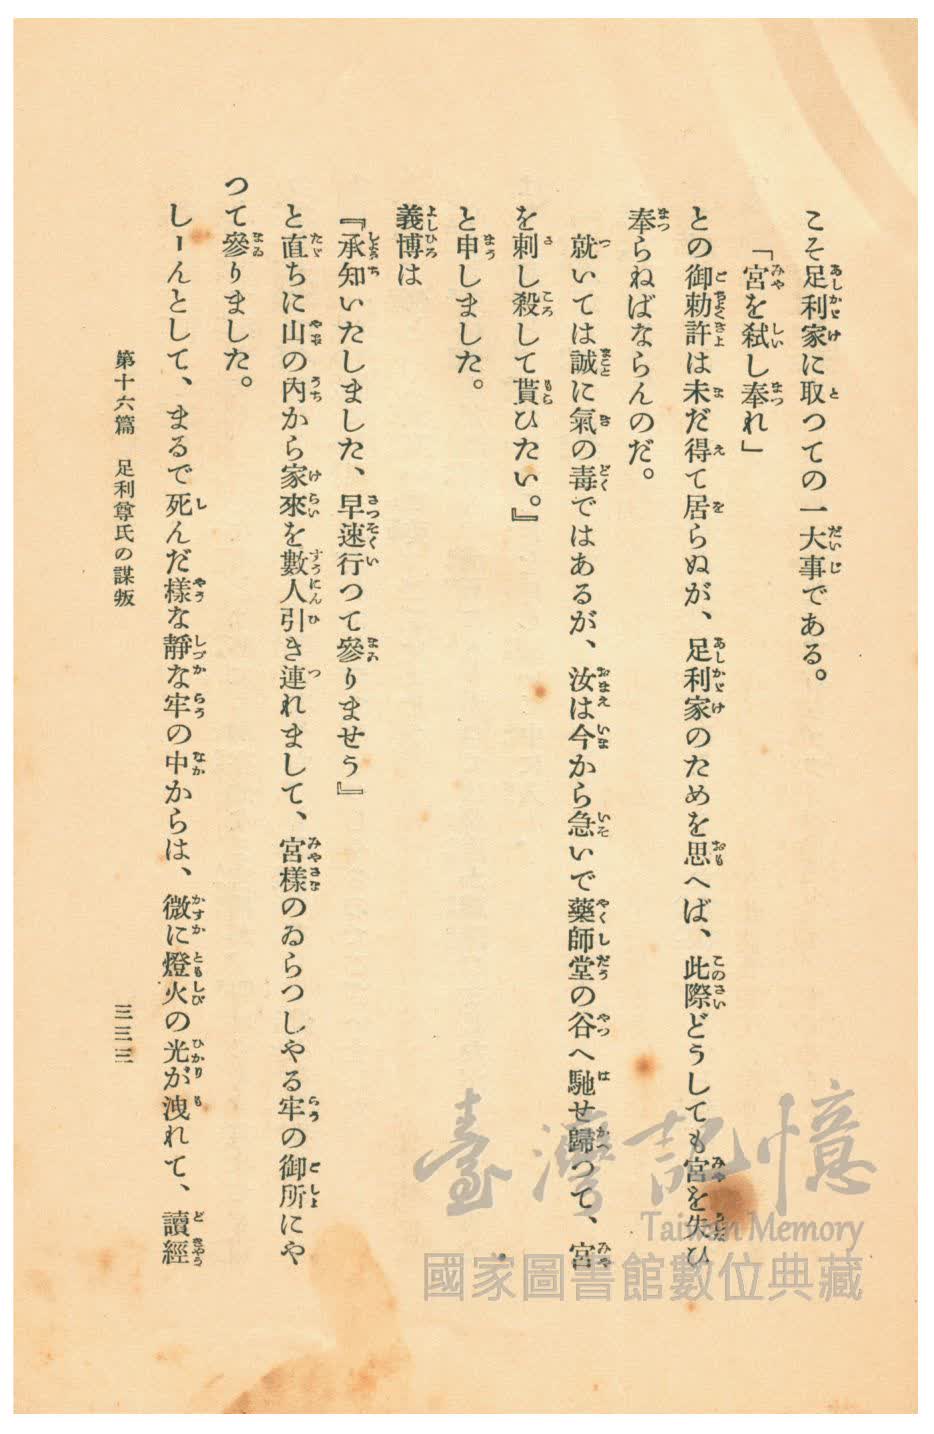 こそ足利家に取つての一大事である。
「宮を弑し奉れ」
との御勅許は未だ得て居らぬが、足利家のためを思へば、此際どうしても宮を失ひ
奉らねばならんのだ。
就いては誠に氣の毒ではあるが、汝は今から急いで藥師堂の谷へ馳せ歸つて、宮
を刺し殺して貰ひたい。』
と申しました。
義博は
『承知いたしました、早速行つて參りませう』
と直ちに山の內から家來を數人引き連れまして、宮樣のゐらつしやる牢の御所にや
つて參りました。
しーんとして、まるで死んだ樣な靜な牢の中からは、微に燈火の光が洩れて、讀經
第十六篇 足利尊氏の謀叛
三三三
臺灣記憶
Taiwan Memory
國家圖書館數位典藏